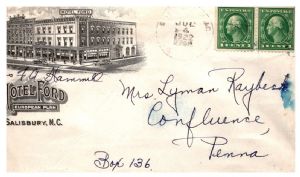 HOTEL FORD
JUL
1922
F. A. Grammer
HOTEL FORD
EUROPEAN PLAN
SALISBURY, N.C.
Mrs Lyman Raybeck
Confluence,
Penna
Box 136.